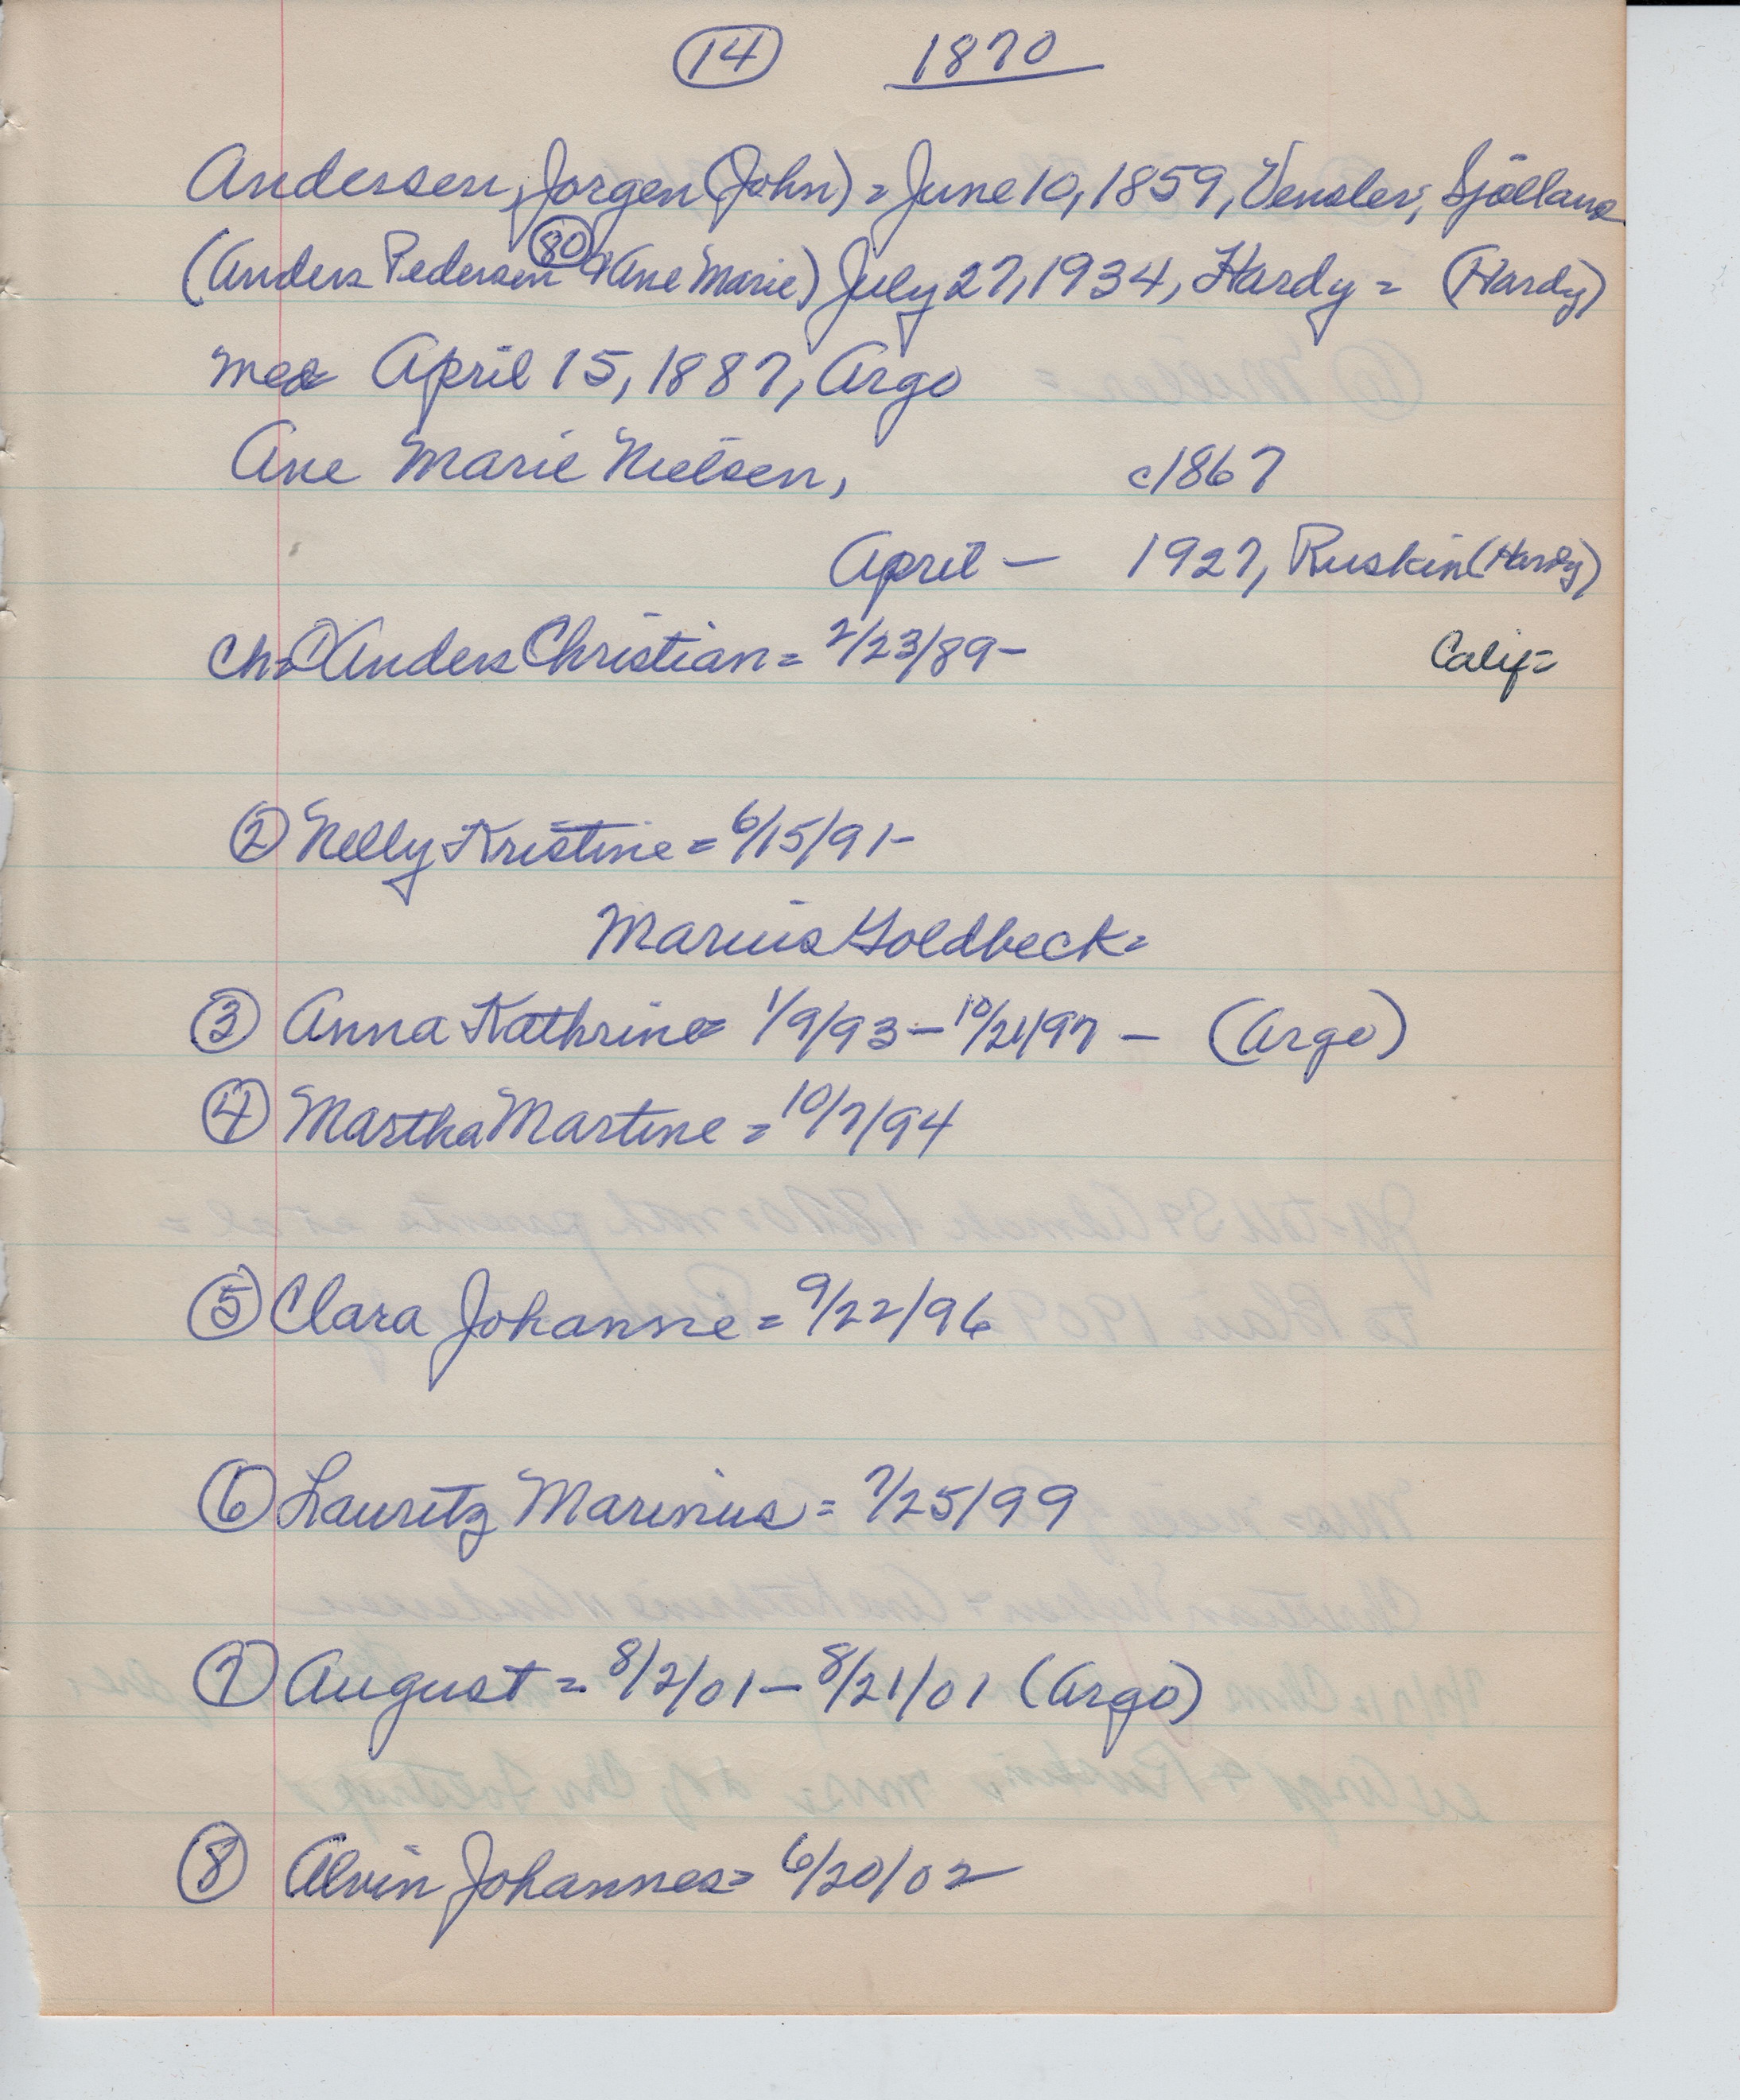 (14) 1870
Andersen, Jorgen (John) = June 10, 1859, Vensler, Sjölland
(Anders Pedersen (80) & Ane Marie) July 27, 1934, Hardy = (Hardy)
med April 15, 1887, Argo
Ane Marie Nielsen, c1867
April — 1927, Ruskin (Hardy)
Ch= (1) Anders Christian = 2/23/89 - Calif=
(2) Nelly Kristine = 6/15/91 -
Marius Goldbeck =
(3) Anna Kathrine = 1/9/93 - 10/21/97 - (Argo)
(4) Martha Martine = 10/7/94
(5) Clara Johanne = 9/22/96
(6) Lauritz Marinus = 7/25/99
(7) August = 8/2/01 - 8/21/01 (Argo)
(8) Alvin Johannes = 6/20/02